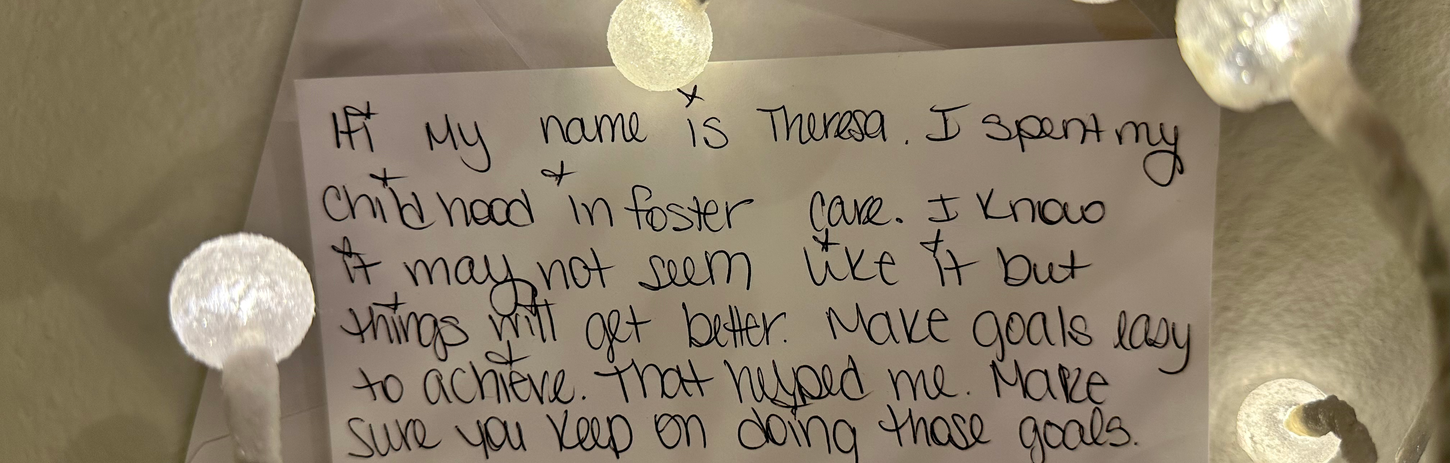 Hi My name is Theresa. I spent my
childhood in foster care. I know
it may not seem like it but
things will get better. Make goals easy
to achieve. That helped me. Make
sure you keep on doing those goals.